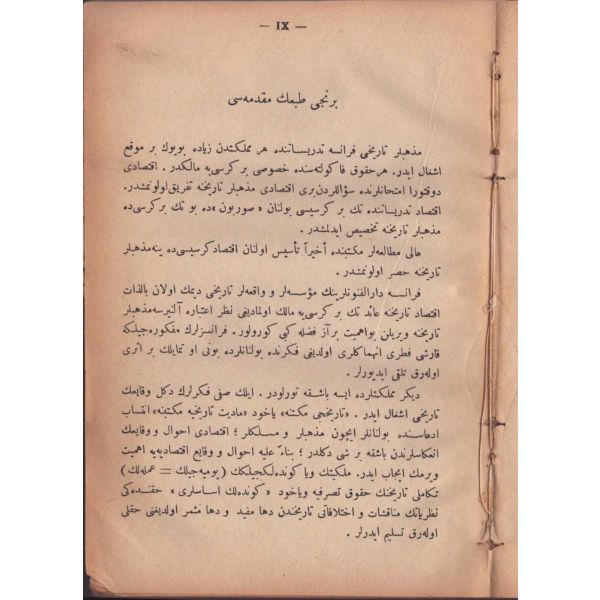 — IX —
برنجى طبعك مقدمه‌سى
مذهبلر تاريخى فرانسه تدريساتنده هر مملكتدن زياده بويوك بر موقع
اشغال ايدر. هر حقوق فاكولته‌سنده خصوصى بر كرسى‌يه مالكدر. اقتصادى
دوقتورا امتحانلرنده سؤاللردن برى اقتصادى مذهبلر تاريخنه تفريق اولونمشدر.
اقتصاد تدريساتنده تك بر كرسيسى بولنان « صوربون »ده بو تك بركرسى‌ده
مذهبلر تاريخنه تخصيص ايدلمشدر .
عالى مطالعه‌لر مكتبنده أخيراً تأسيس اولنان اقتصاد كرسيسى‌ده ينه مذهبلر
تاريخنه حصر اولونمشدر .
فرانسه دارالفنونلرينك مؤسسه‌لر و واقعه‌لر تاريخى ديمك اولان بالذات
اقتصاد تاريخنه عائد تك بر كرسى‌يه مالك اولماديغى نظر اعتباره آلنيرسه مذهبلر
تاريخنه ويريلن بواهميت بر آز فضله كبى كورولور . فرانسزلرك مفكوره‌جيلكه
قارشى فطرى انهماكلرى اولديغى فكرنده بولنانلرده بونى او تمايلك بر اثرى
اوله‌رق تلقى ايديورلر .
ديكر مملكتلرده ايسه باشقه تورلودر . ايلك صفى فكرلرك دكل وقايعك
تاريخى اشغال ايدر . «تاريخى مكتبنه» ياخود «ماديت تاريخيه مكتبنه» انتساب
ادعاسنده بولنانلر ايچون مذهبلر و مسلكلر ؛ اقتصادى احوال و وقايعك
انعكاسلرندن باشقه بر شى دكلدر ؛ بناءً عليه احوال و وقايع اقتصاديه‌يه اهميت
ويرمك ايجاب ايدر. ملكيتك ويا كونده‌لكجيلكك (يوميه‌جيلك = عمله‌لك)
تكاملى تاريخنك حقوق تصرفيه وياخود « كونده‌لك اساسلرى » حقنده‌كى
نظرياتك مناقشات و اختلافاتى تاريخندن دها مفيد و دها مثمر اولديغنى حقلى
اوله‌رق تسليم ايدرلر .